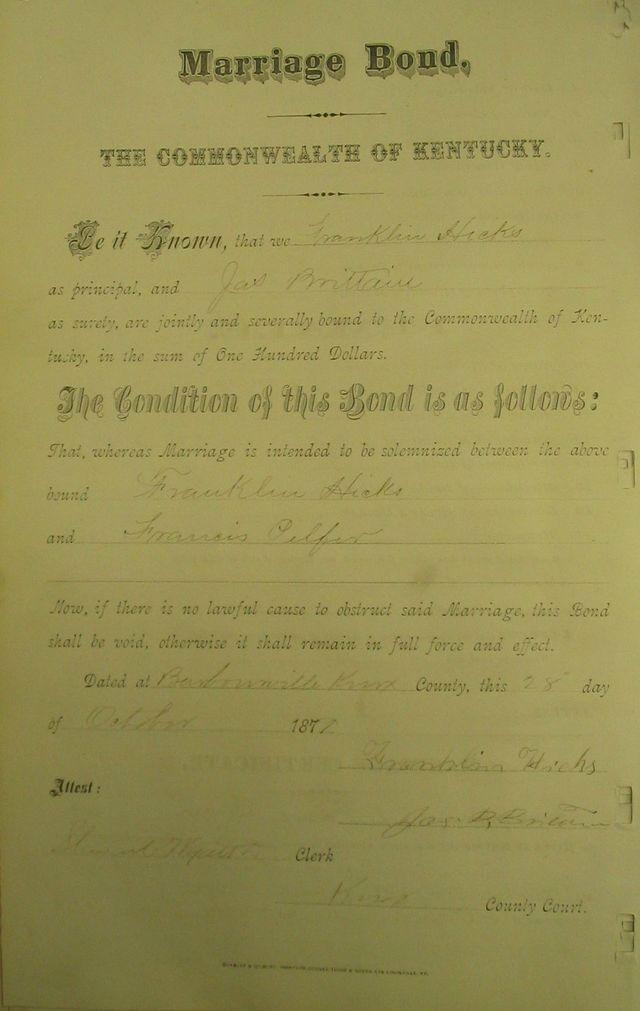 Marriage Bond,
THE COMMONWEALTH OF KENTUCKY.
Be it Known, that we Franklin Hicks
as principal, and Jas Brittain
as surety, are jointly and severally bound to the Commonwealth of Ken-
tucky, in the sum of One Hundred Dollars.
The Condition of this Bond is as follows:
That, whereas Marriage is intended to be solemnized between the above
bound Franklin Hicks
and Francis Pelfer
Now, if there is no lawful cause to obstruct said Marriage, this Bond
shall be void, otherwise it shall remain in full force and effect.
Dated at Barbourville Knox County, this 28 day
of October 187
Franklin Hicks
Attest:
Jas. Brittain
Clerk
Knox County Court.